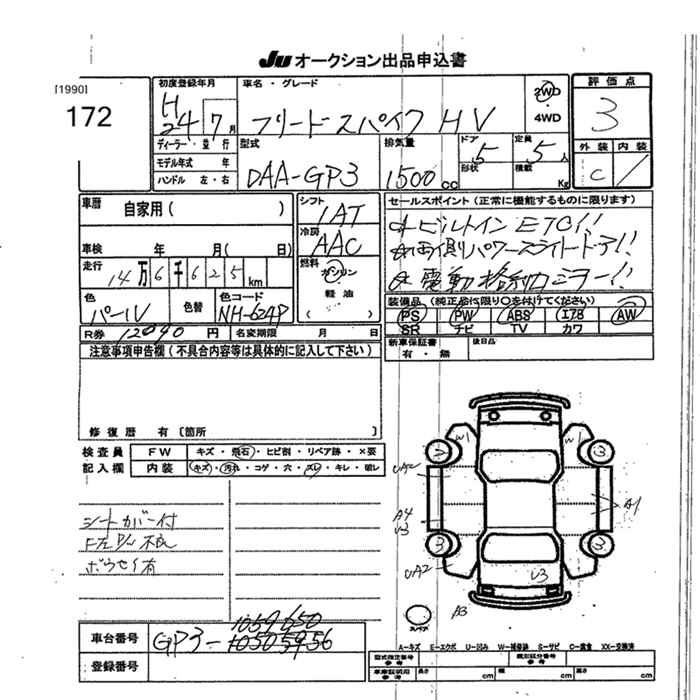 Ju オークション出品申込書
[1990]
172
初度登録年月
H 24 7月
車名・グレード
フリードスパイク HV
2WD
4WD
評価点
3
外装 内装
C
ディーラー・並行
モデル年式 年
ハンドル 左・右
型式
DAA-GP3
排気量
1500 cc
ドア
5
形状
定員
5人
積載 Kg
車暦
自家用( )
シフト
IAT
車検 年 月( 日)
冷房
AAC
走行
14万6千625km
燃料
ガソリン
軽油
( )
色
パールV
色替
色コード
NH-624P
R券 12090円
名変期限 月 日
セールスポイント(正常に機能するものに限ります)
☆ビルトインETC!!
☆両側パワースライドドア!!
☆電動格納ミラー!!
装備品(純正品に限り○を付けてください)
PS PW ABS エアB AW
SR ナビ TV カワ
新車保証書
有・無
後日品
注意事項申告欄(不具合内容等は具体的に記入して下さい)
修復歴 有〔箇所 〕
検査員記入欄
FW キズ・飛石・ヒビ割・リペア跡・×要
内装 キズ・汚れ・コゲ・穴・スレ・キレ・破レ
シートカバー付
ボウセイ有
W1
UA2
A4
U3
UA2
3
3
3
A1
U3
A3
スペア
車台番号
GP3-
1059650
登録番号
A-キズ E-エクボ U-凹み W-補修跡 S-サビ C-腐食 XX-交換済
型式指定番号
参考
類別区分番号
参考
車車証明用
参考
長さ cm
幅 cm
高さ cm